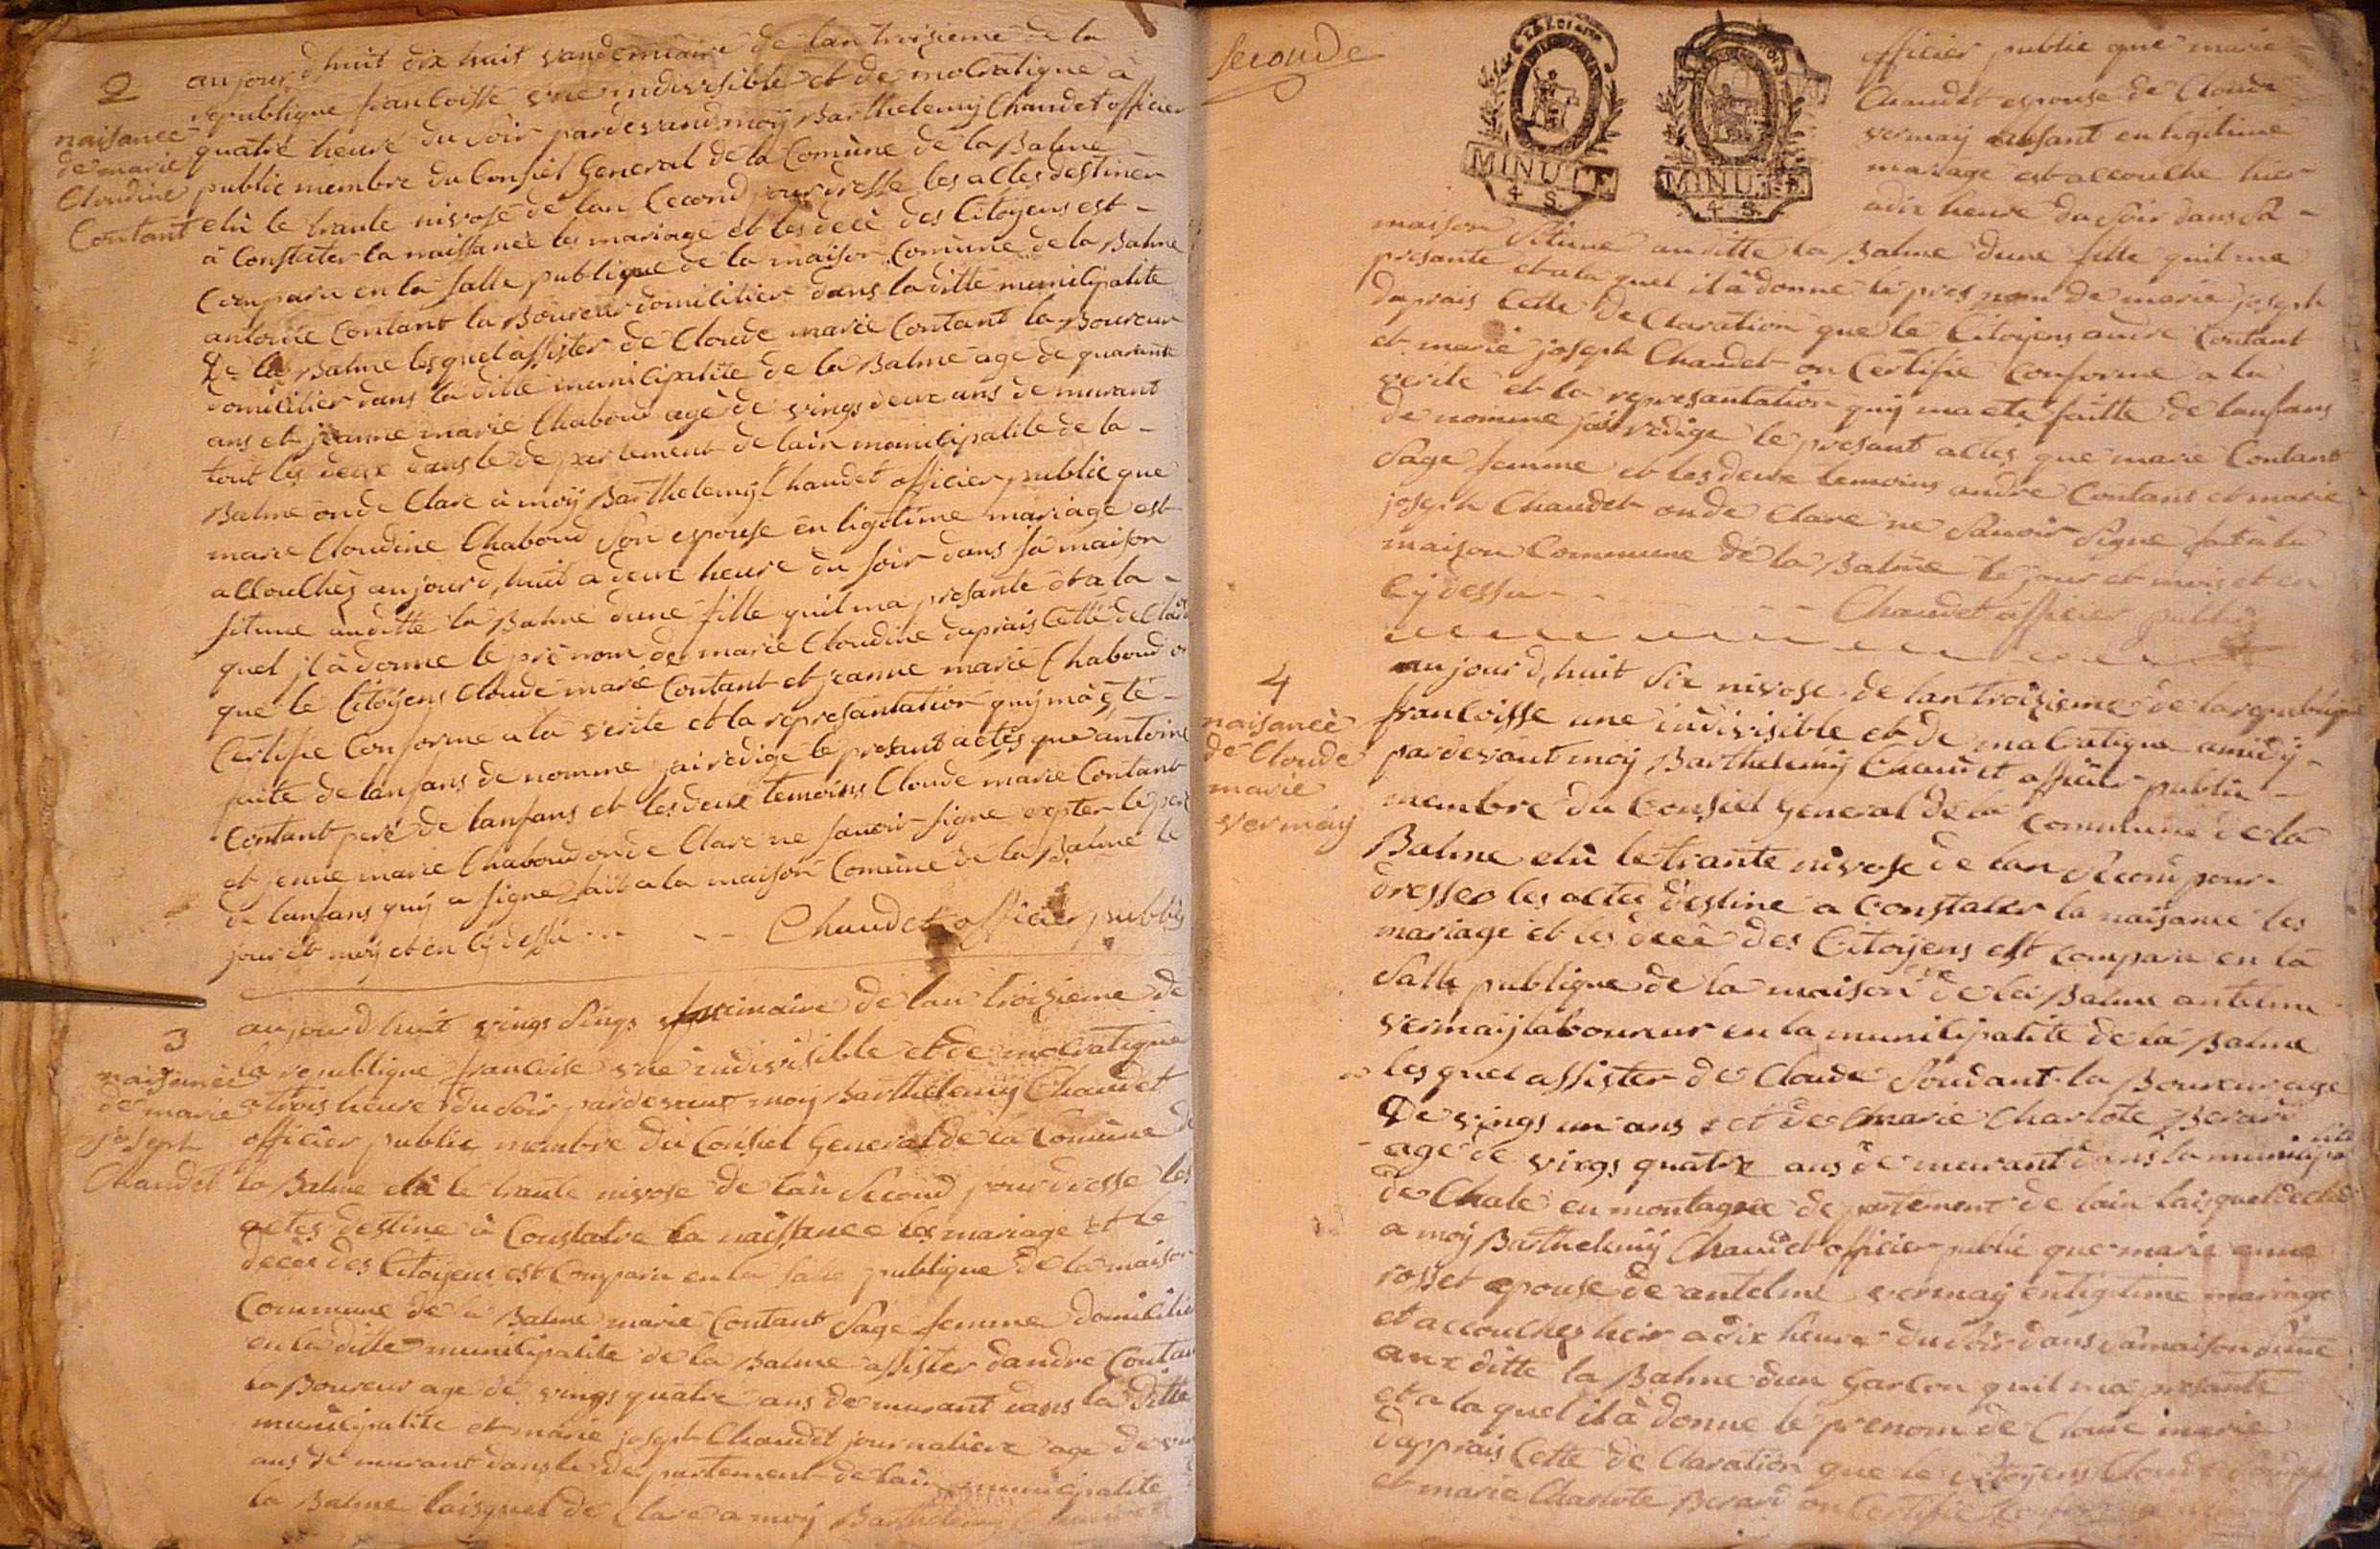 2
naisance
de marie
Cloudine
Contant
aujourd,huit dix huit vandemiaire de lan troizieme de la
republique francoisse une indivisible et de mocratique à
quatre heure du soir pardevand moÿ Barthelemÿ Chaudet officier
public membre du Consiel General de la Comune de la Balme
elù le trante nivose de lan Cecond pour dresse les actes destiner
à Constater la naissance les mariage et les decè des Citoyens est -
Comparu en la salle publique de la maison Comune de la Balme
antoine Contant la Boureur domicilier dans laditte municipalite
De la Balme lesquel assister de Cloude marie Contant la Boureur
domicilier dans la ditte municipalite de la Balme age de quarante
ans et jeanne marie Chaboud agè de vings deux ans demurant
tout les deux dans le departement de lain municipalite de la -
Balme on de Clare à moÿ Barthelemÿ Chaudet officier public que
marie Cloudine Chaboud Son espouse en ligitime mariage est
accouchèz aujourd,huit a deux heure du soir dans sa maison
situue auditte la Balme dune fille quil ma presante et a la -
quel jl à donne le prè nom de marie Cloudine daprais Cette de Clara
que le Citoÿens Cloude marie Contant et jeanne marie Chaboud on
Certifie Conforme a la verite et la represantation quÿ mà etè -
faite de lanfans de nomme jai redige le presant actes que antoine
Contant pere de lanfans et les deux temoins Cloude marie Contant
et jenne marie Chaboud on de Clare ne savoir signe exepter le pere
de lanfans quÿ a signe fait a la maison Comune de la Balme le
jour et moÿ et en Cÿ dessu ... -- Chaudet officier publiq
3
naisance
de marie
joseph
Chaudet
aujourd huit vings sings frimaire de lan troizieme de
la republique francoise une indivisible et de mocratique
a trois heure du soir pardevant moÿ Barthelemÿ Chaudet
officier public membre du Consiel General de la Comune de
la Balme elù le trante nivose de lan Second pour dresse les
actes destine à Constatre la naissance les mariage et le
decès des Citoÿens est Comparu en la salle publique de la maison
Commune de la Balme marie Contant Sage femme domicilie
en la ditte municipalite de la Balme assister dandre Contant
la Boureur age de vings quatre ans demurant dans la ditte
municipalite et marie joseph Chaudet journaliere age de
ans de murant dans le departement de lain municipalite
la Balme laisquel de Clare a moÿ Barthelemÿ
Seconde
MINUTE
4 S
MINUTE
4 S
officier public que marie
Chaudet espouse de Cloude
vermaÿ en ligitime
mariage est accouche hier
a dix heure du soir dans sa -
maison Situue auditte la Balme dune fille quil me
presante et a la quel il à donne le pres nom de marie joseph
daprais Cette de Claration que le Citoÿens andre Contant
et marie joseph Chaudet on Certifie Conforme a la
verite et la represantation quÿ ma ete faitte de lanfans
de nomme jai redige le presant actes que marie Contant
Sage femme et les deux temoins andre Contant et marie
joseph Chaudet on de Clare ne Savoir Signe fat à la
maison Commune de la Balme le jour et mois et en
Cÿ dessu - - -- Chaudet officier public
4
naisance
de Cloude
marie
vermaÿ
aujourd,huit Six nivose de lan troizieme de la republique
francoisse une indivisible et de macratique a midÿ -
pardevant moÿ Barthelemÿ Chaudet officier public -
membre du Consiel General de la Commune de la
Balme elù le trante nivose de lan Second pour
dresser les actes destine a Constater la naisance les
mariage et les decè des Citoÿens est Comparu en la
Salle publique de la maison de la Balme antelme
vermaÿ laboureur en la municipalite de la Balme
lesquel assister de Cloude Soudant la Boureur age
De vings un ans et de marie Charlote Berard
agè de vings quatre ans demurant dans la municipalite
de Chale en montagne departement de lain laisquel de clare
a moÿ Barthelemÿ Chaudet officier public que marie anne
rosset epouse de antelme vermaÿ en ligitime mariage
et accouchez heir a dix heure du soir dans sa maison situue
aux ditte la Balme dun Garcon quil ma presante
et a la quel il à donne le prenom de Cloude marie
dapprais Cette de Claration que le Citoÿens Cloude
et marie Charlote Berard on Certifie Conforme